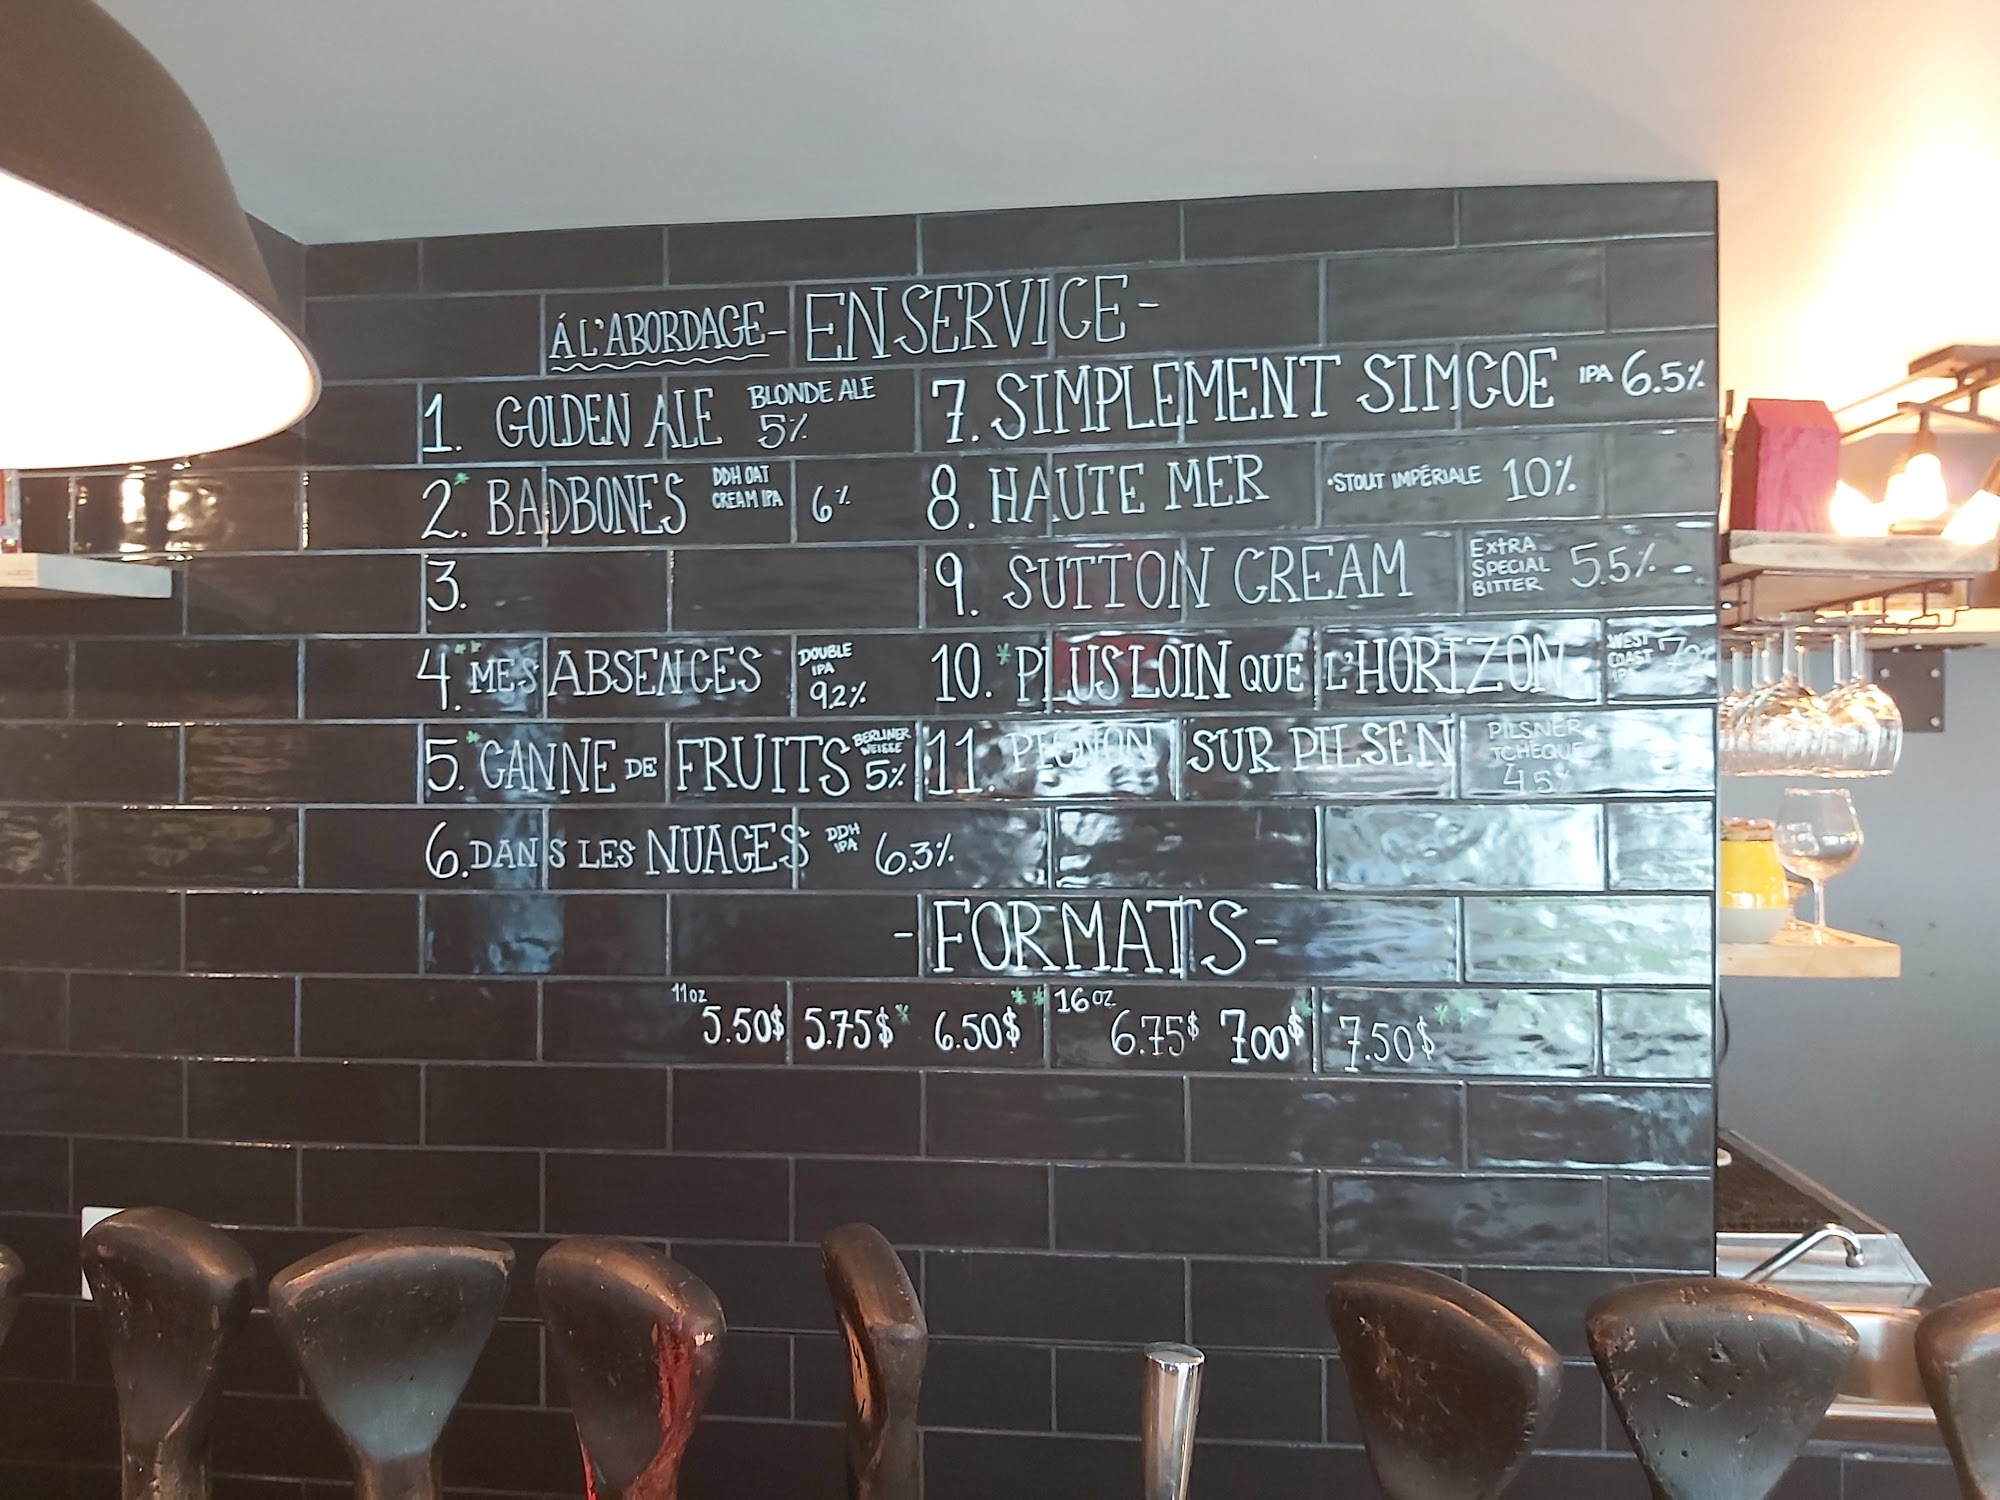 Á L'ABORDAGE - EN SERVICE -
1. GOLDEN ALE BLONDE ALE 5%
2.* BADBONES DDH OAT CREAM IPA 6%
3.
4.** MES ABSENCES DOUBLE IPA 9.2%
5.* CANNE DE FRUITS BERLINER WEISSE 5%
6. DANS LES NUAGES DDH IPA 6.3%
7. SIMPLEMENT SIMCOE IPA 6.5%
8. HAUTE MER • STOUT IMPÉRIALE 10%
9. SUTTON CREAM EXTRA SPECIAL BITTER 5.5%
10.* PLUS LOIN QUE L'HORIZON WEST COAST IPA
11. PIGNON SUR PILSEN PILSNER TCHÈQUE 4.5%
- FORMATS -
11oz 5.50$ 5.75$* 6.50$** 16oz 6.75$ 7.00$* 7.50$**